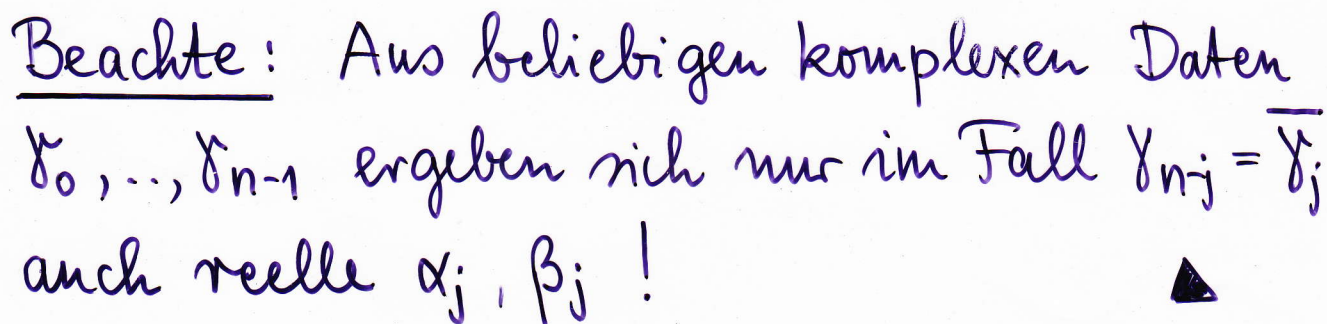 Beachte: Aus beliebigen komplexen Daten
γ₀,..,γₙ₋₁ ergeben sich nur im Fall γₙ₋ⱼ = γ̅ⱼ
auch reelle αⱼ, βⱼ ! ▲